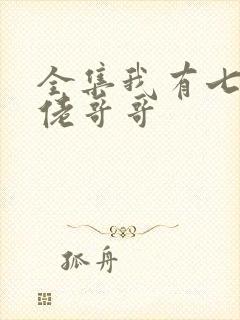 全集我有七
佬哥哥
孤舟